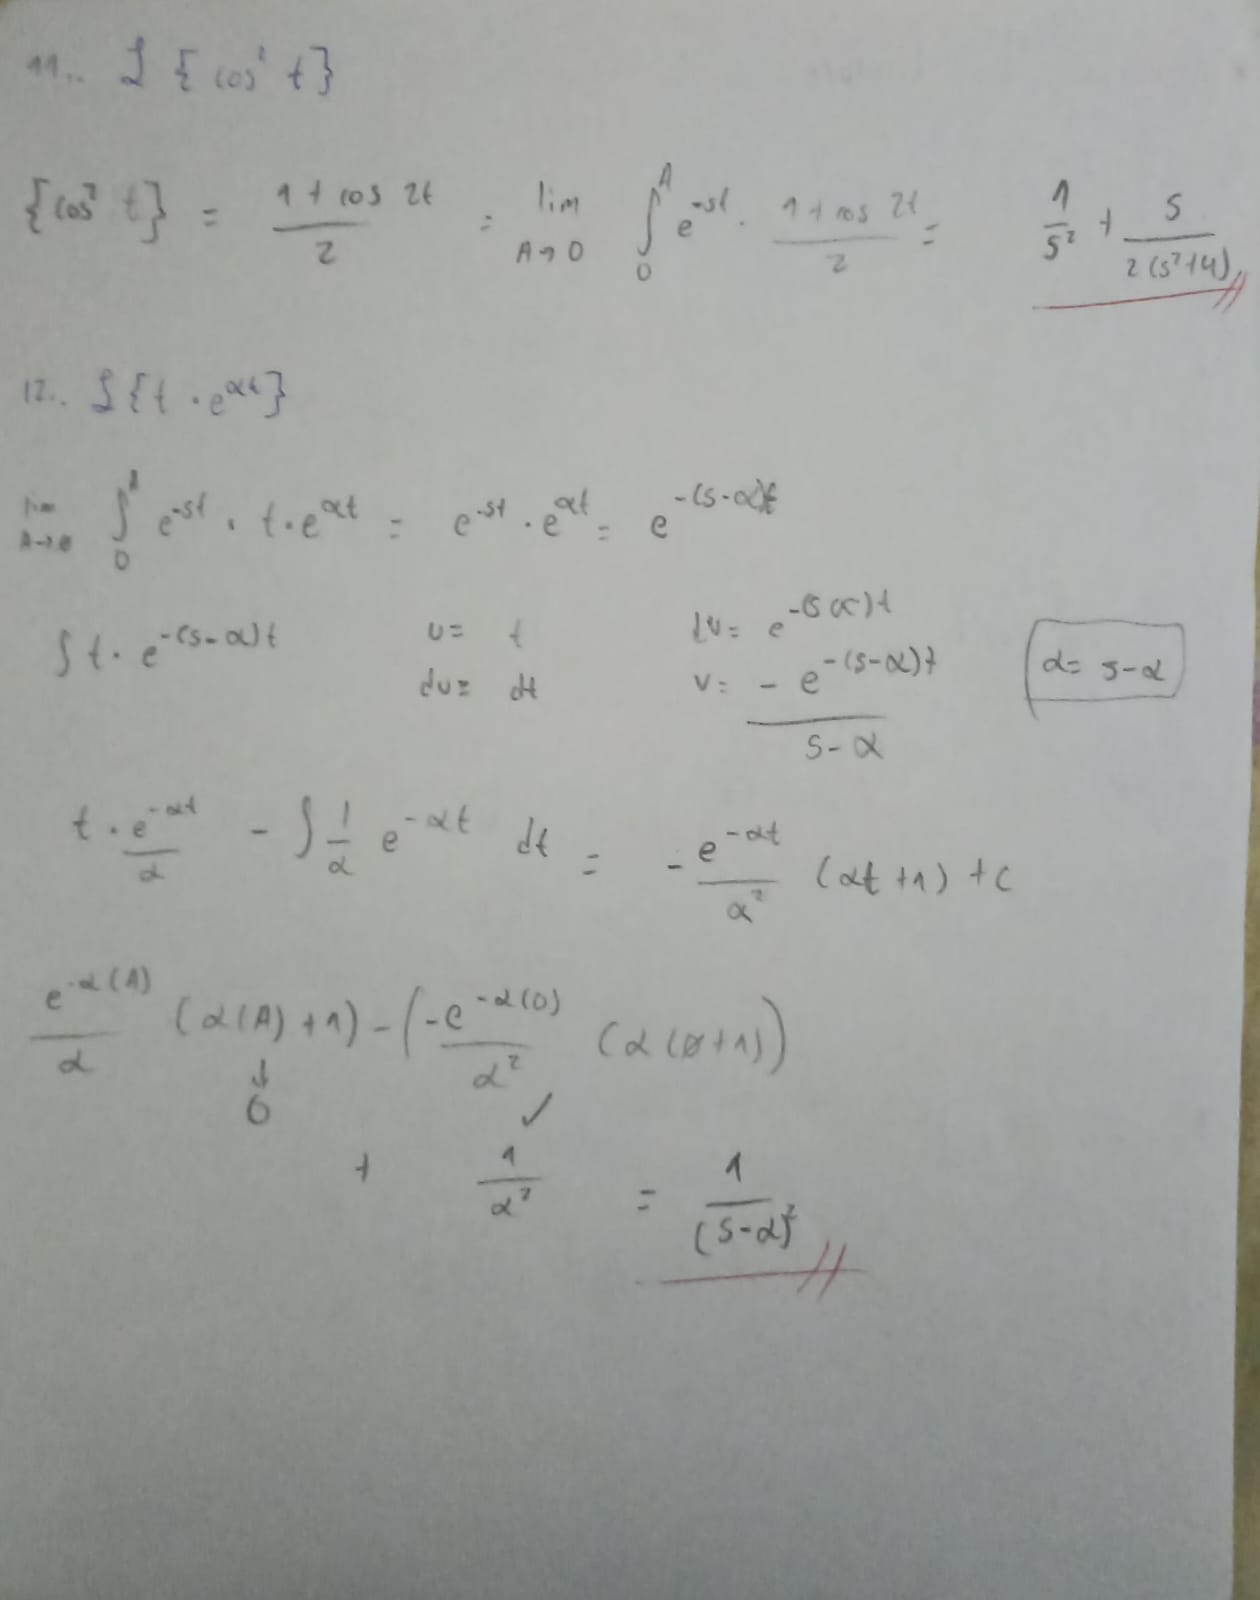 11.. ℒ {cos² t}
{cos² t} = (1 + cos 2t)/2 = lim A→0 ∫₀ᴬ e^(-st) · (1 + cos 2t)/2 = 1/s² + s/(2(s²+4))
12.. ℒ{t · e^(αt)}
lim ∫₀ᴬ e^(-st) · t · e^(αt) = e^(-st) · e^(αt) = e^(-(s-α)t)
∫ t · e^(-(s-α)t) u = t dv = e^(-(s α)t) α = s-α
du = dt v = -e^(-(s-α)t)/(s-α)
t · e^(-αt)/α - ∫ 1/α e^(-αt) dt = -e^(-αt)/α² (αt + 1) + c
e^(-α(A))/α (α(A) + 1) - (-e^(-α(0))/α² (α(0+1))
↓ 0 ✓
+ 1/α² = 1/(s-α)²